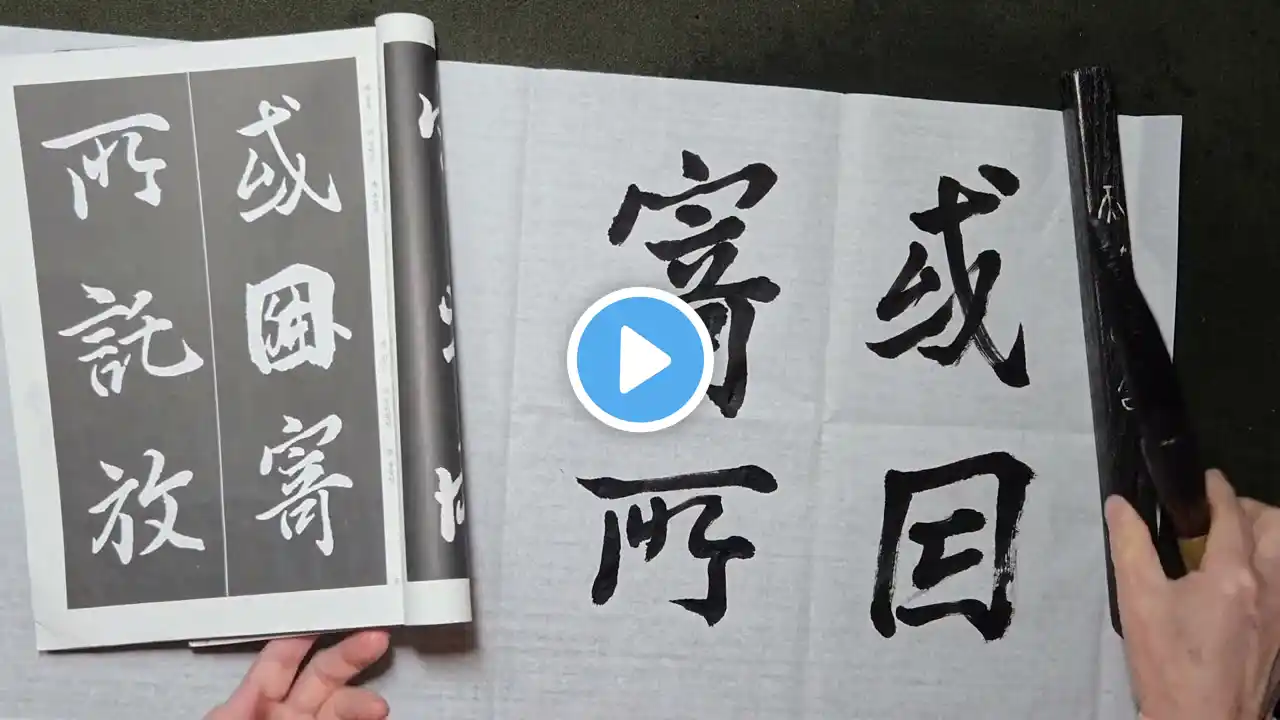 或因寄
所託放
或因
寄所